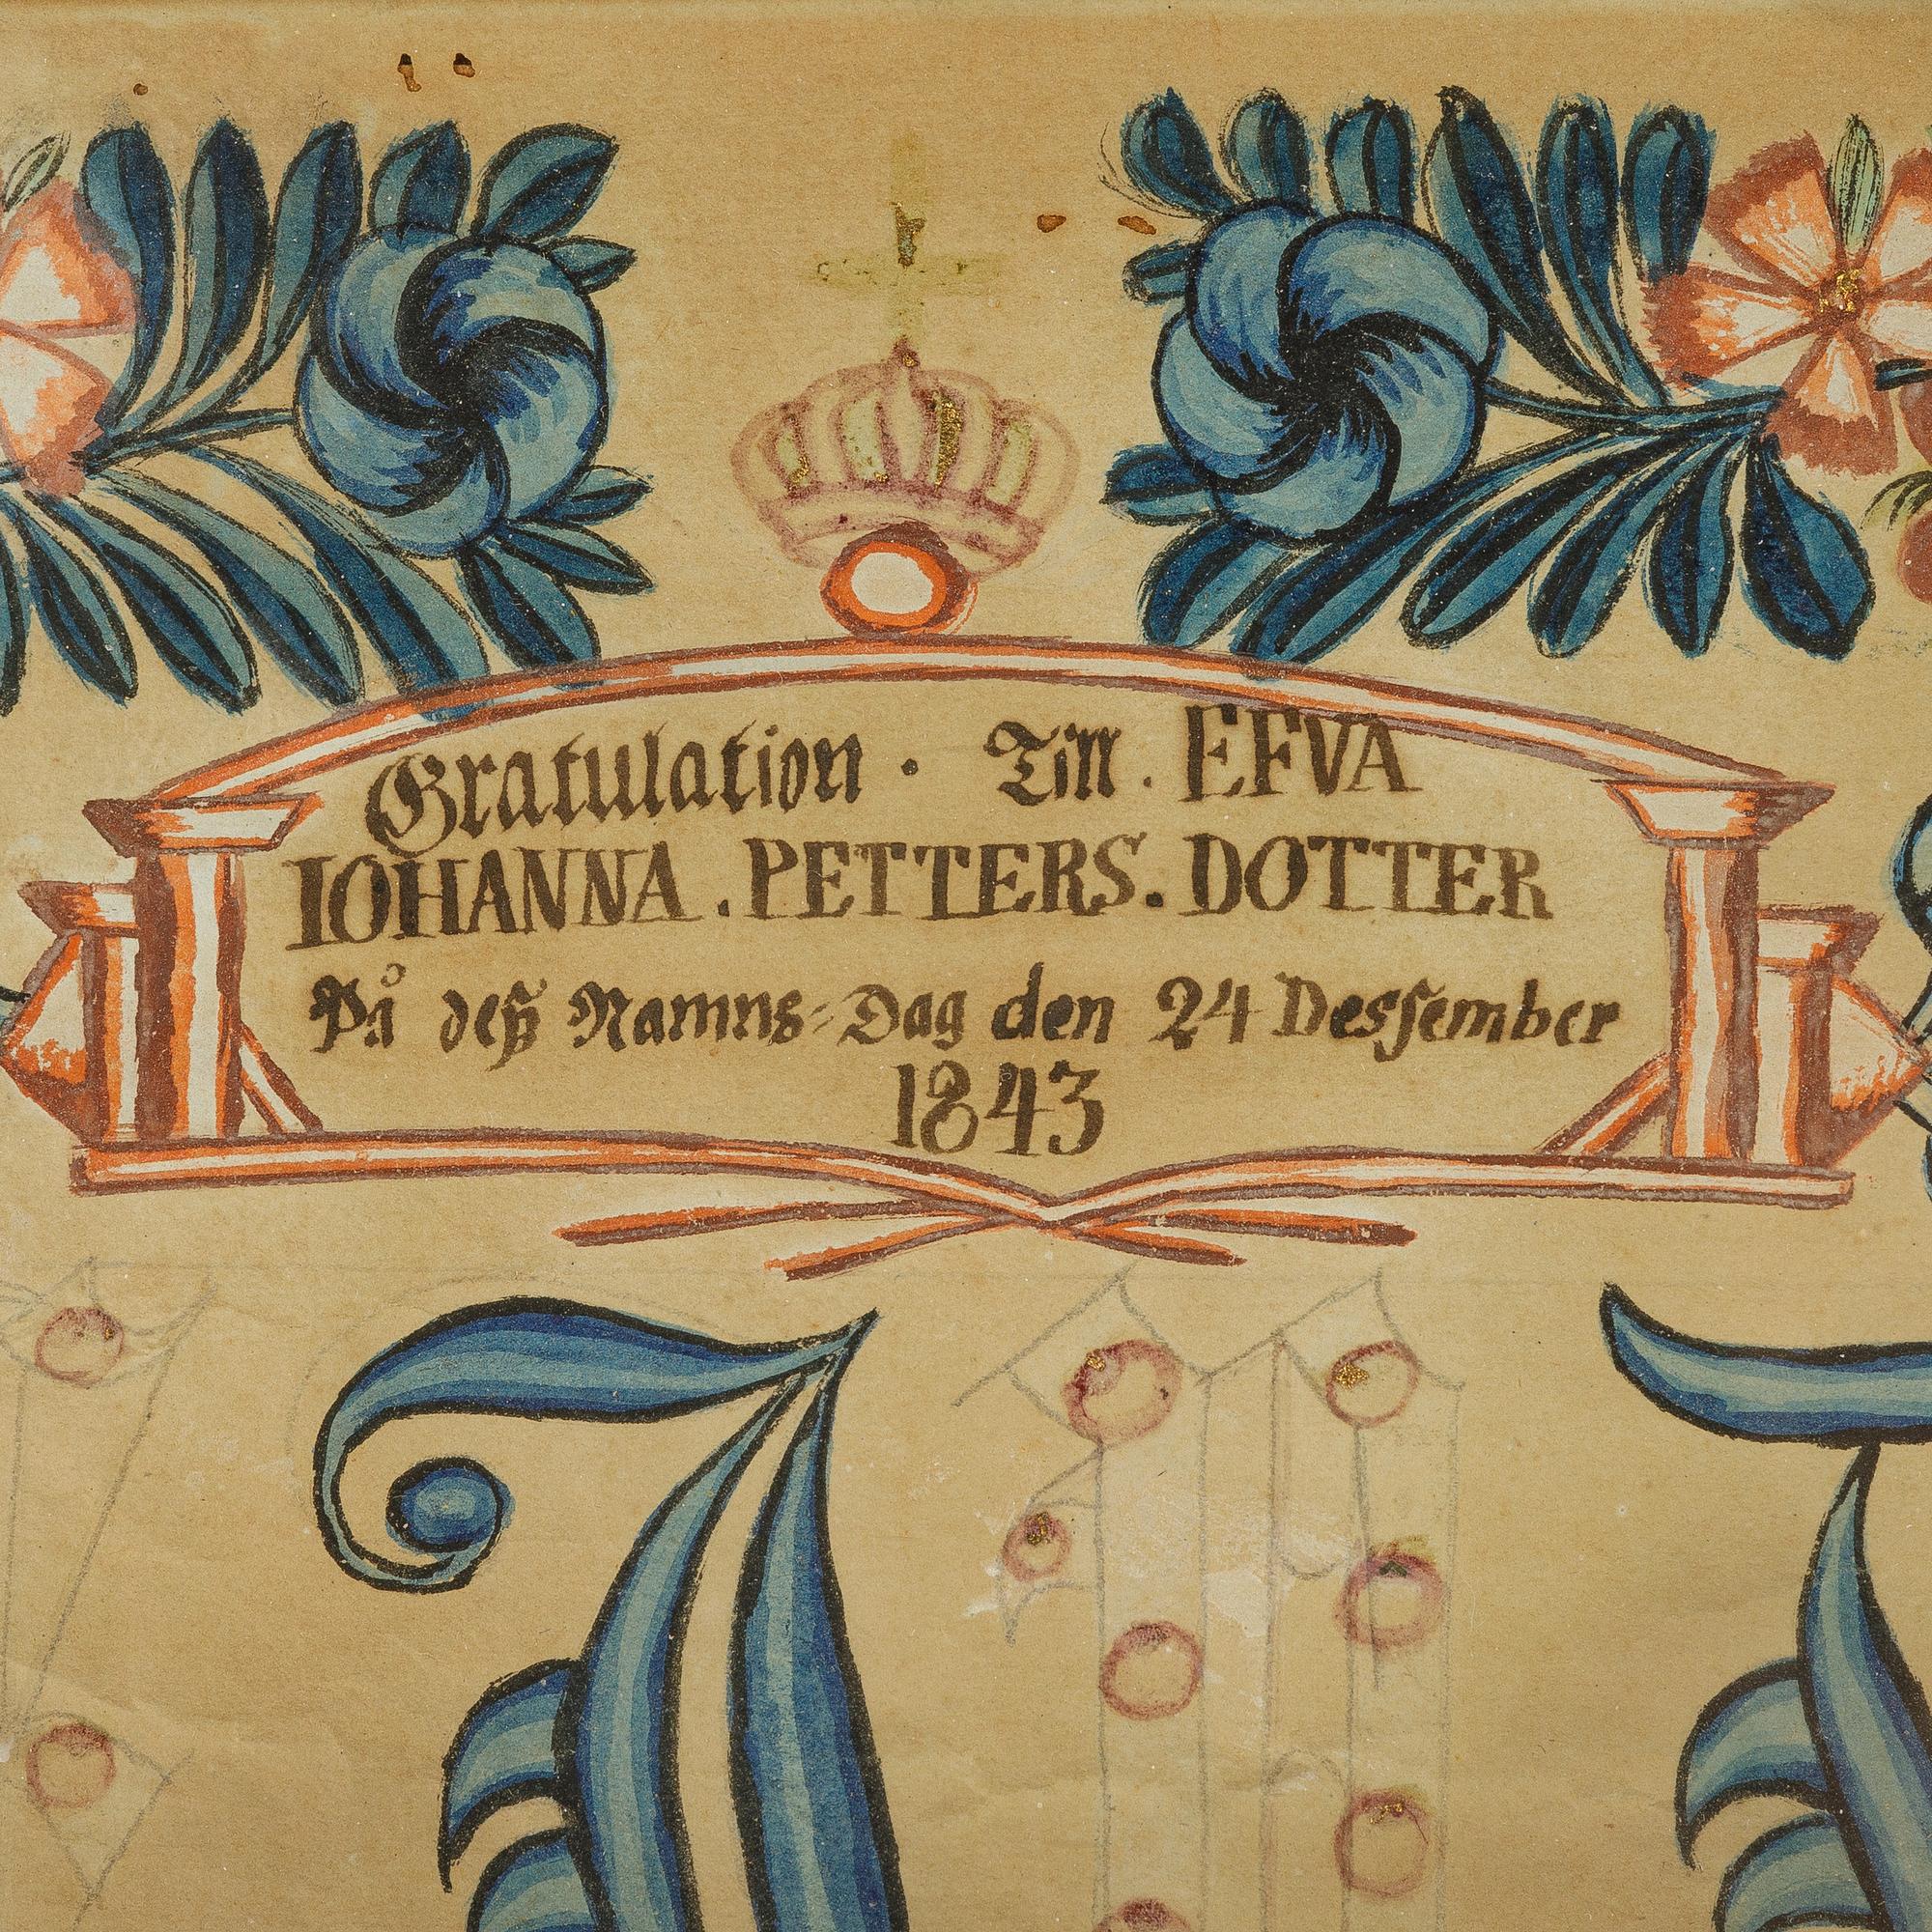 Gratulation · Till . EFVA
IOHANNA . PETTERS . DOTTER
På deß Namns=Dag den 24 Dessember
1843